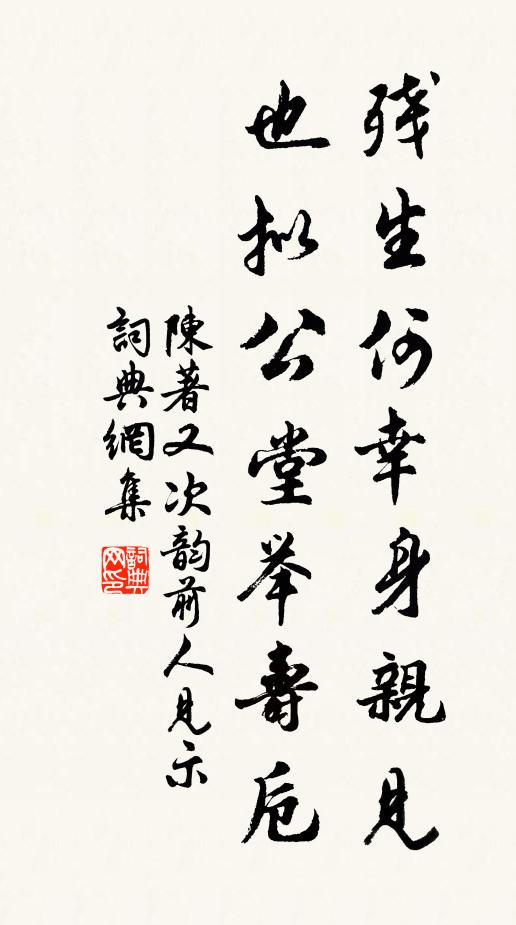 残生何幸身親見
也拟公堂举壽卮
陳著又次韵前人見示
詞典網集
詞典网印